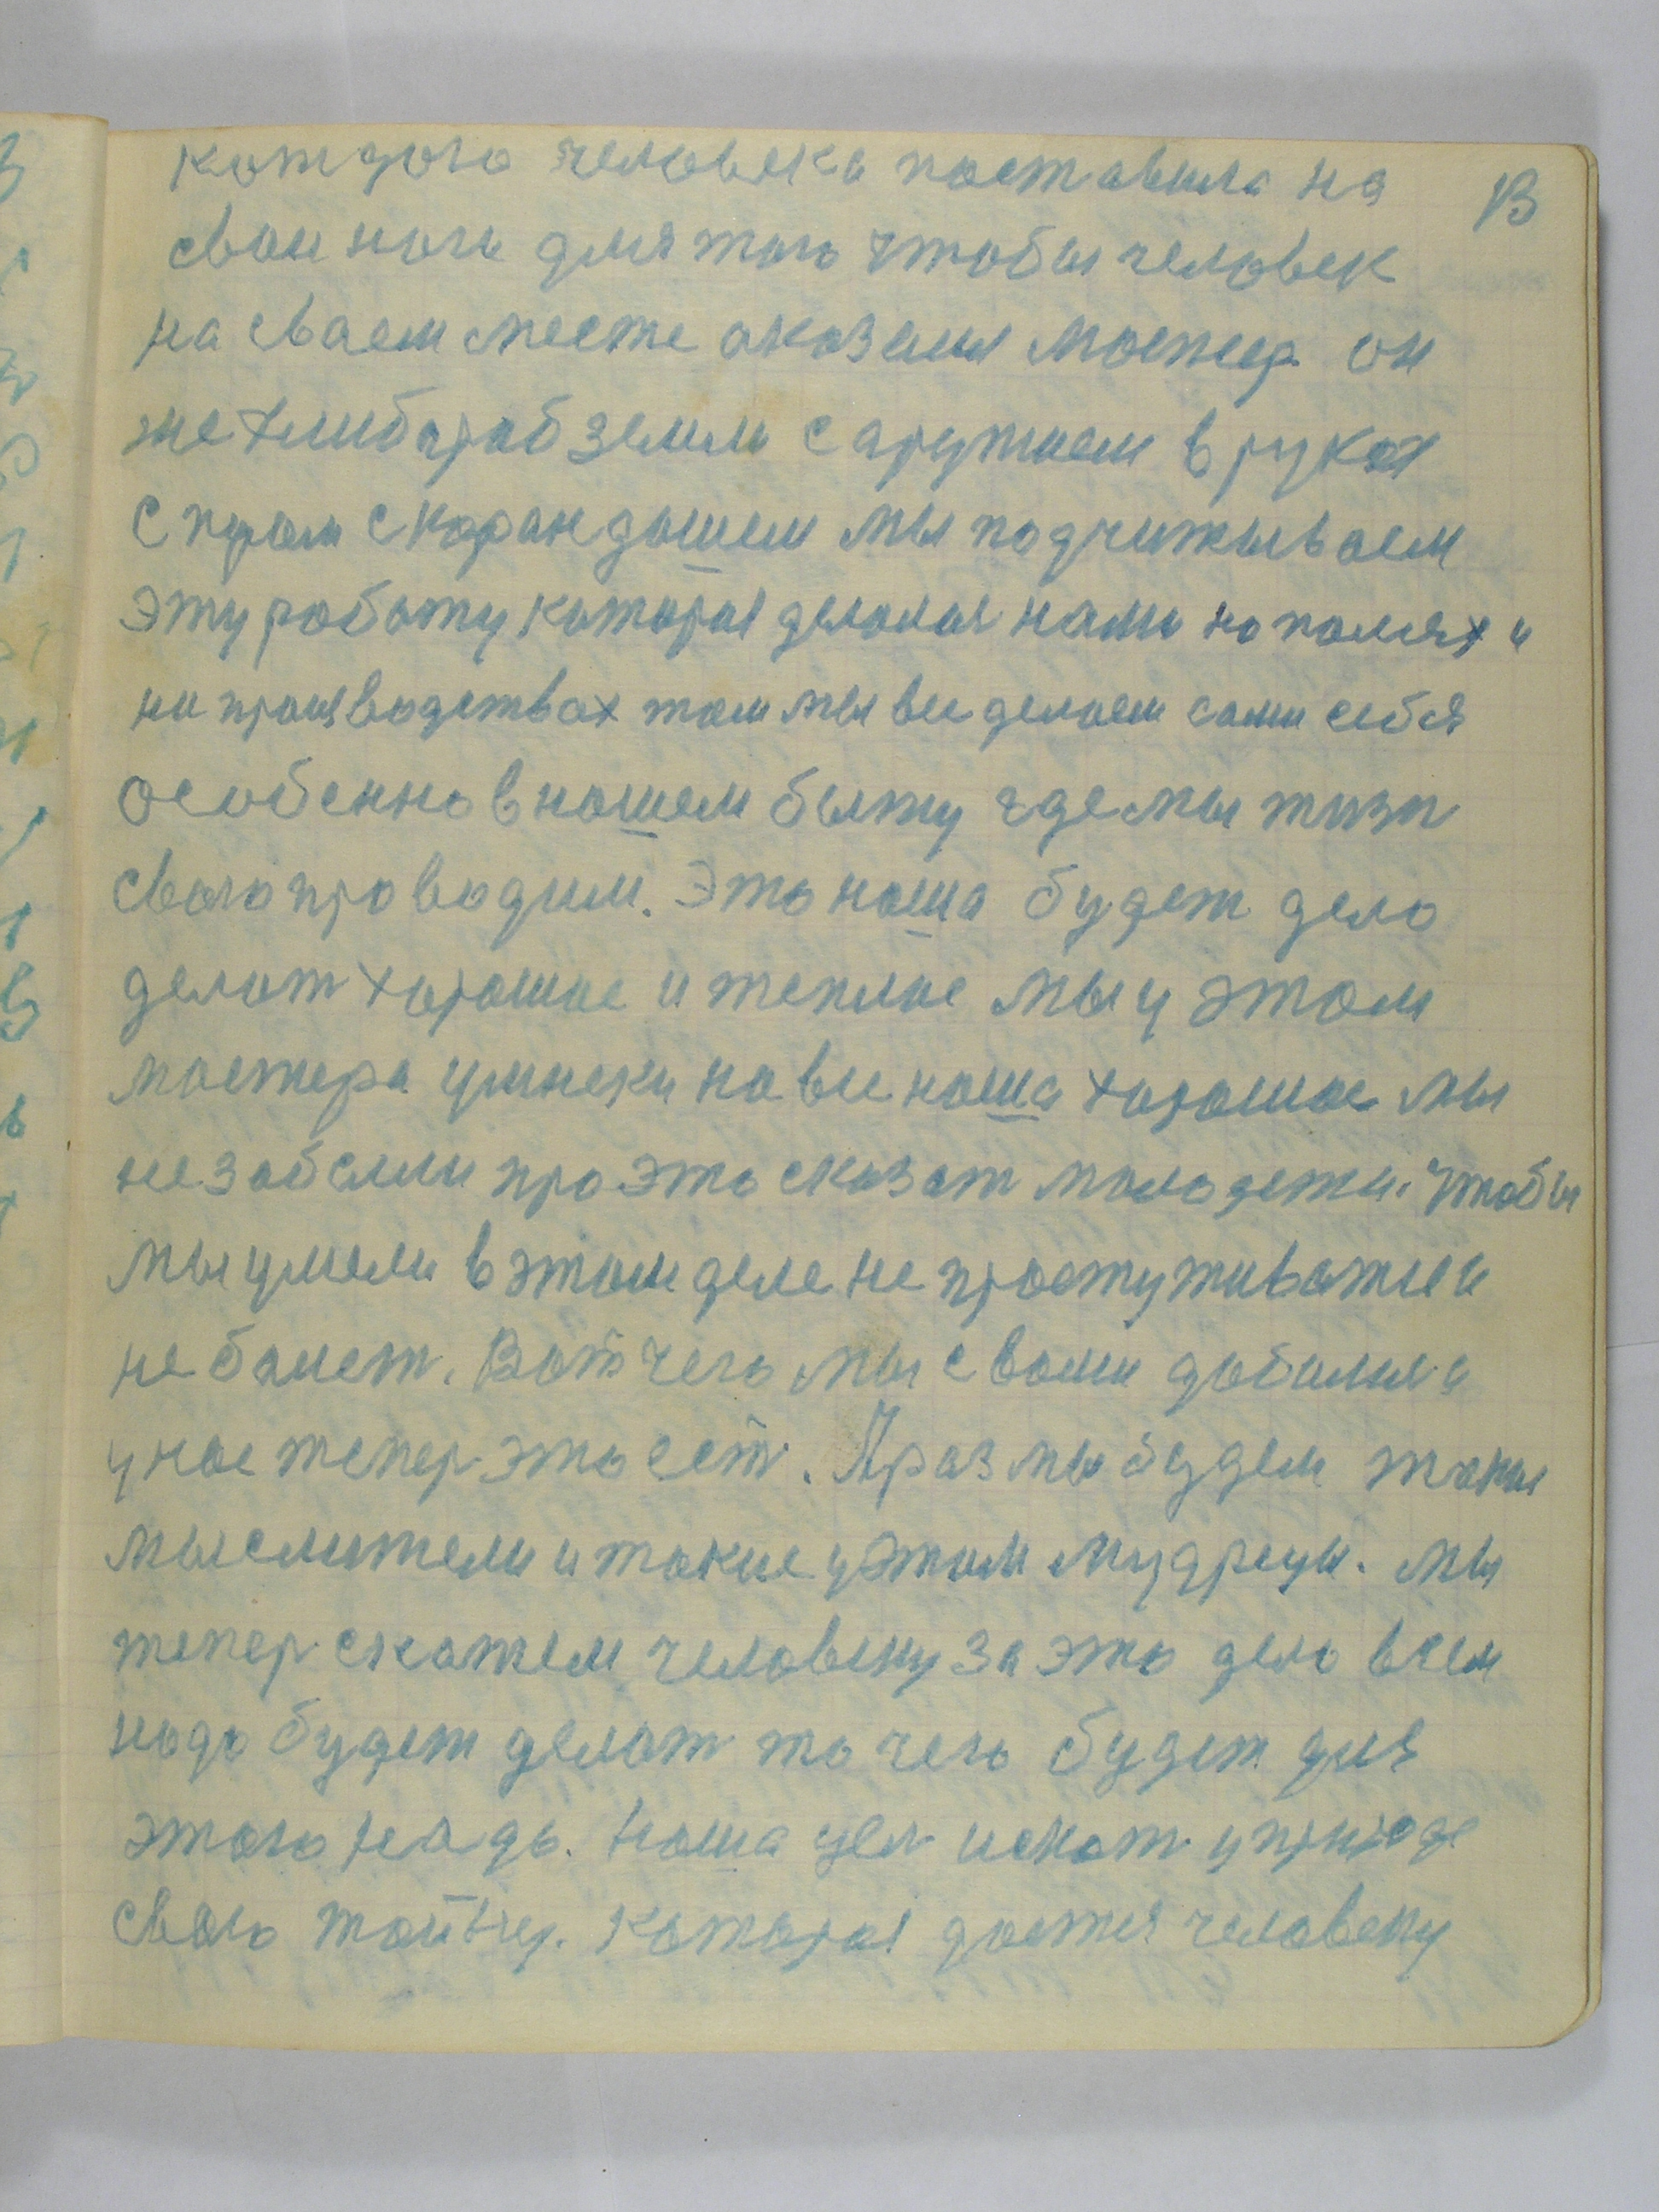 каждого человека поставила на 13
свои ноги для того чтобы человек
на сваем месте оказался мостер он
же хлибараб земли с аружием в руках
с пером с карандашем мы подчитываем
эту работу каторая делалас нами на полях и
на произвадствах там мы все делаем сами себя
особенно в нашем быту где мы жизн
свою проводим. Это наша будет дело
делат харашое и теплое мы у этом
мостера умнеки на все наша харашое мы
незабыли про это сказат молодежи. Чтобы
мы умели в этом деле не простуживатся и
не болет. Вот чего мы с вами добилис а
у нас тепер это ест. А раз мы будем такие
мыслители и такие у этом мудрецы. мы
тепер скажем человеку за это дело всем
надо будет делат то чего будет для
этого надо. наша цел искат у природе
свою тайну. каторая дается человеку